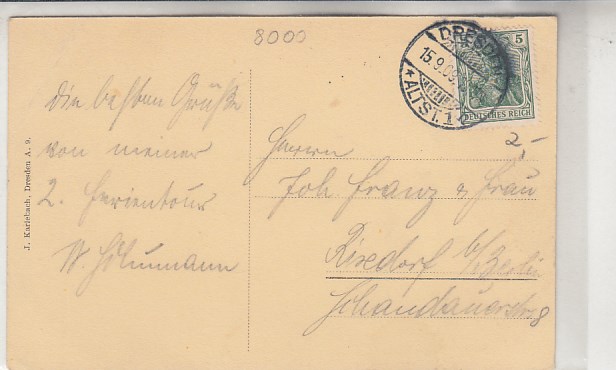 8000
DRESDEN
15.9.09.
*ALTST. 1
5
DEUTSCHES REICH
2,-
J. Karlebach, Dresden A. 9.
die besten Grüße
von meiner
2. Ferientour
W.
Herrn
Joh Franz & Frau
Rixdorf b/Berlin
Schandauerstr 8